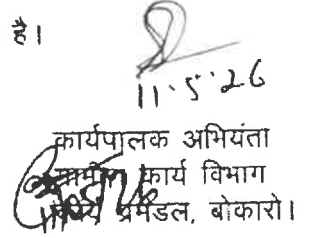 है।
11.5.26
कार्यपालक अभियंता
ग्रामीण कार्य विभाग
कार्य प्रमंडल, बोकारो।